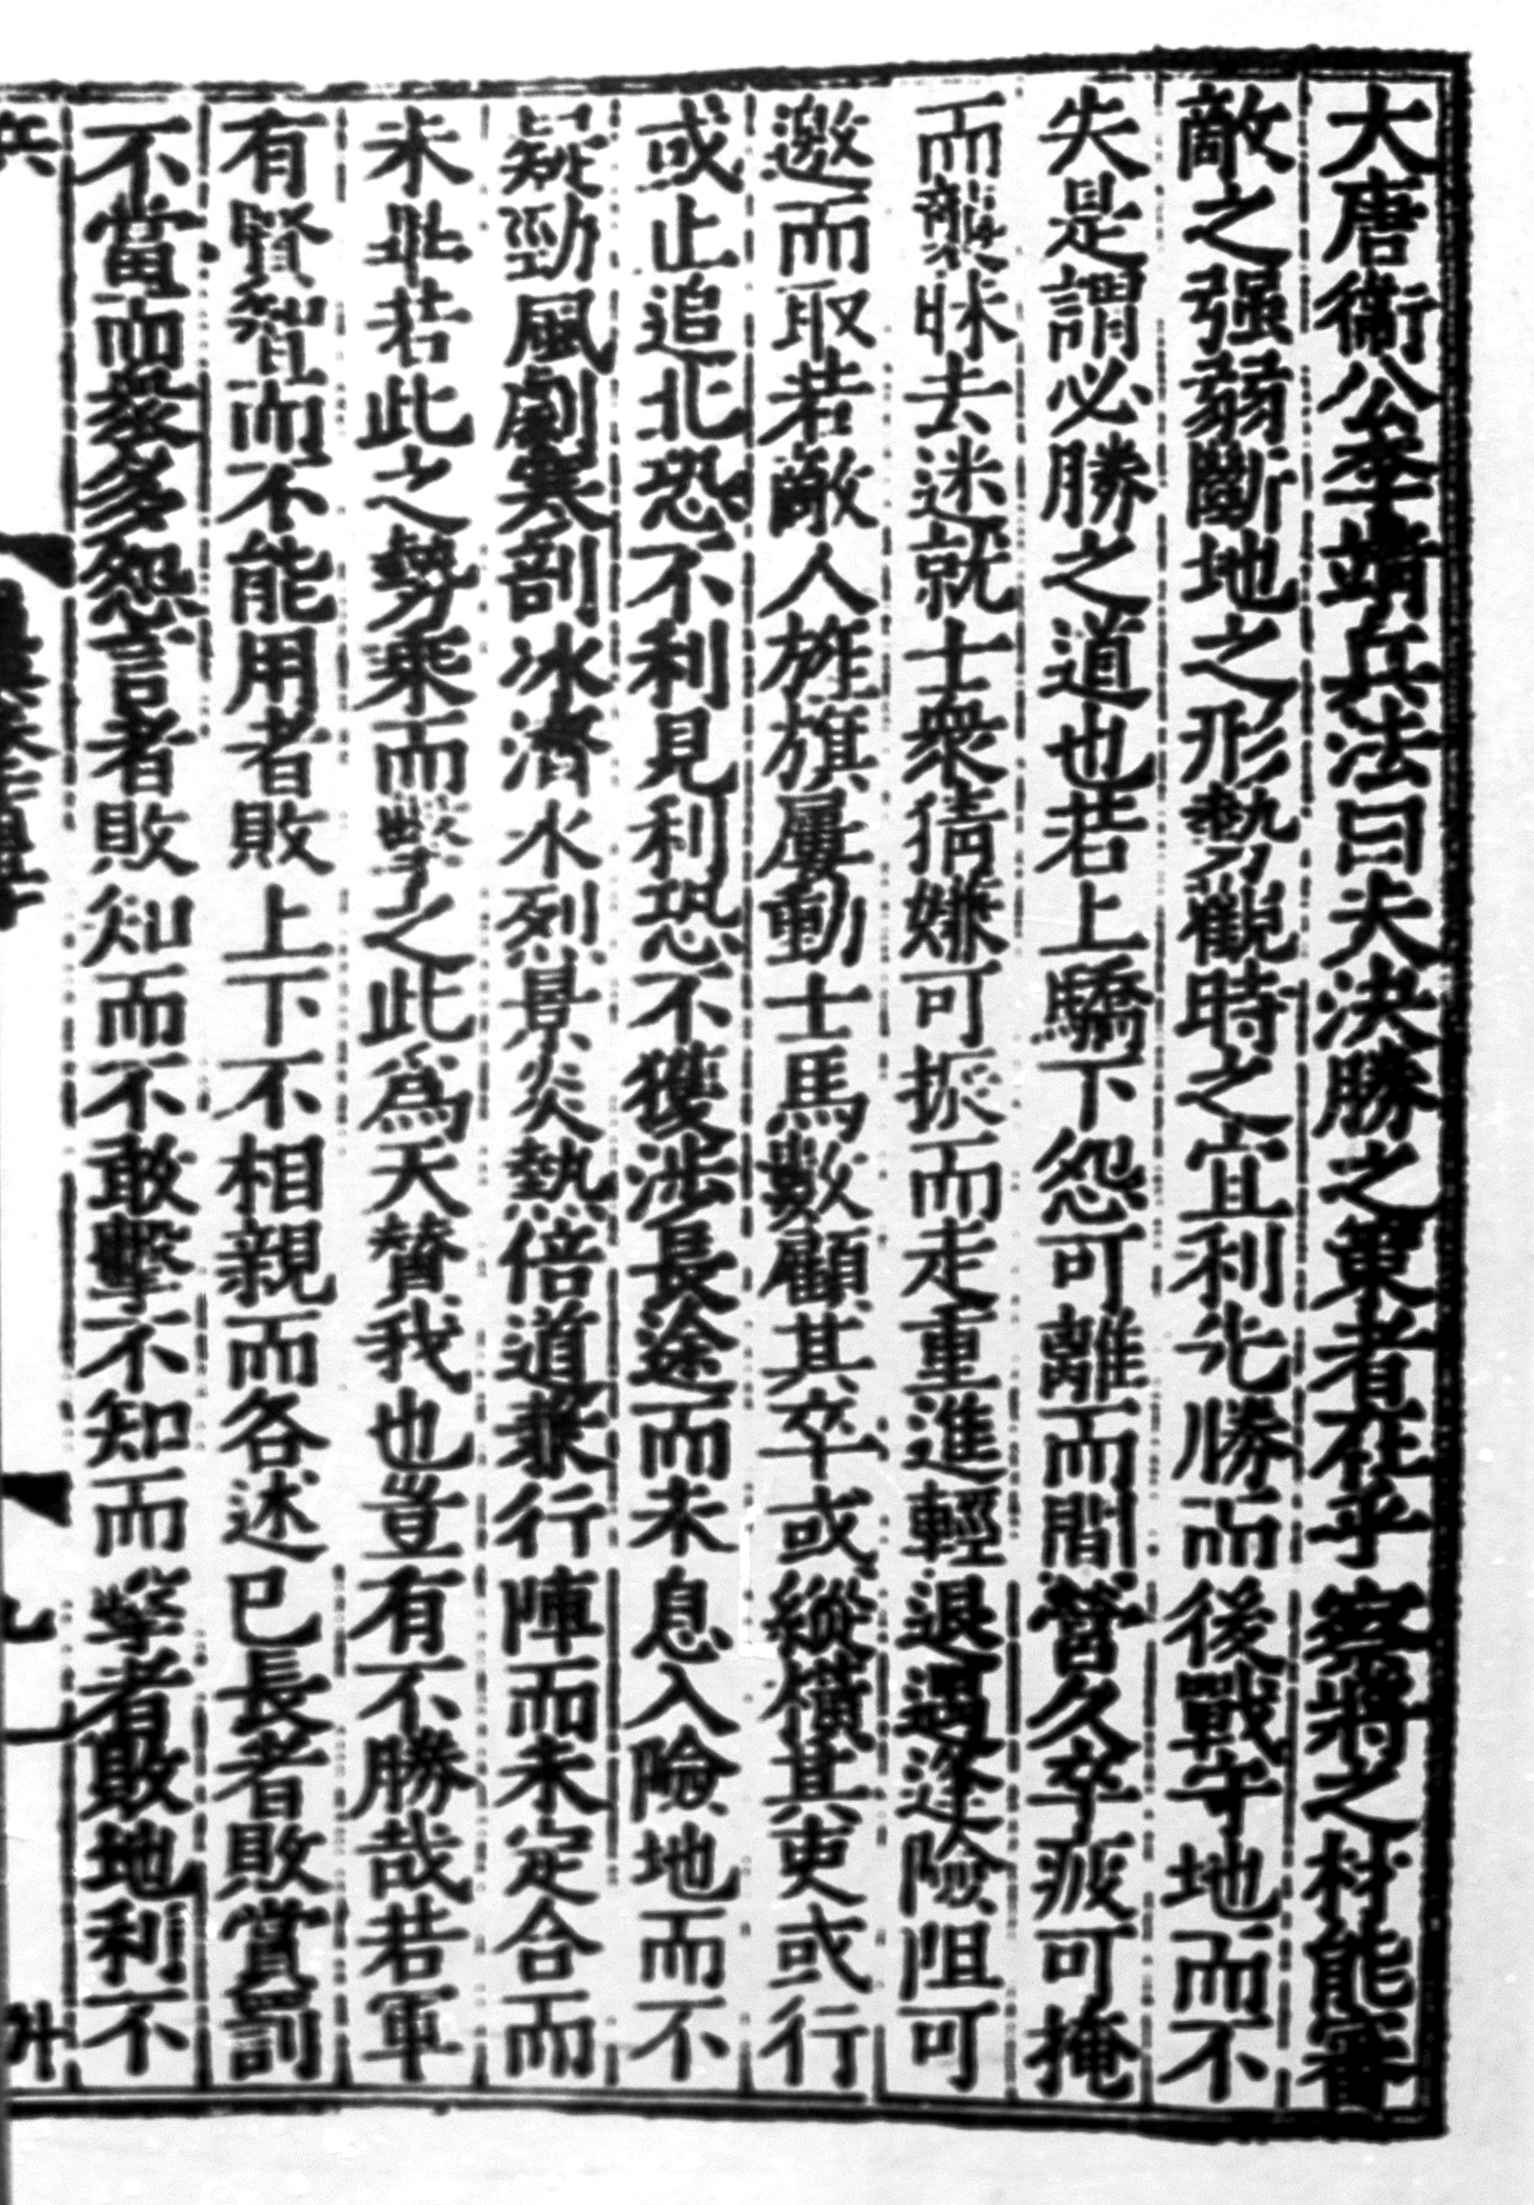 大唐衞公李靖兵法曰夫決勝之東者在乎察將之材能審
敵之强弱斷地之形勢觀時之宜利先勝而後戰守地而不
失是謂必勝之道也若上驕下怨可離而間營久卒疲可掩
而襲昧去迷就士衆猜嫌可振而走重進輕退遇逢險阻可
邀而取若敵人旌旗屢動士馬數顧其卒或縱橫其吏或行
或止追北恐不利見利恐不獲涉長途而未息入險地而不
疑勁風劇寒剖冰濟水烈景炎熱倍道兼行陣而未定合而
未畢若此之勢乘而擊之此爲天贊我也豈有不勝哉若軍
有賢智而不能用者敗上下不相親而各述已長者敗賞罰
不當而發多怨言者敗知而不敢擊不知而擊者敗地利不
兵